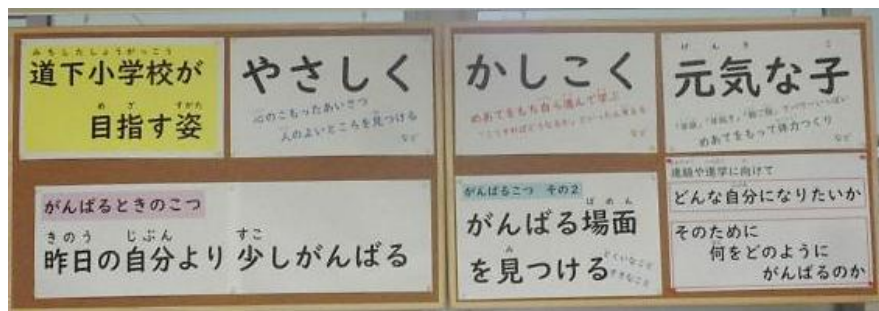 道下小学校が
目指す姿
やさしく
心のこもったあいさつ
人のよいところを見つける
など
かしこく
めあてをもち自ら進んで学ぶ
など
元気な子
めあてをもって体力つくり
など
がんばるときのこつ
昨日の自分より少しがんばる
がんばるこつ その2
がんばる場面
を見つける
とくいなこと
すきなこと
進級や進学に向けて
どんな自分になりたいか
そのために
何をどのように
がんばるのか